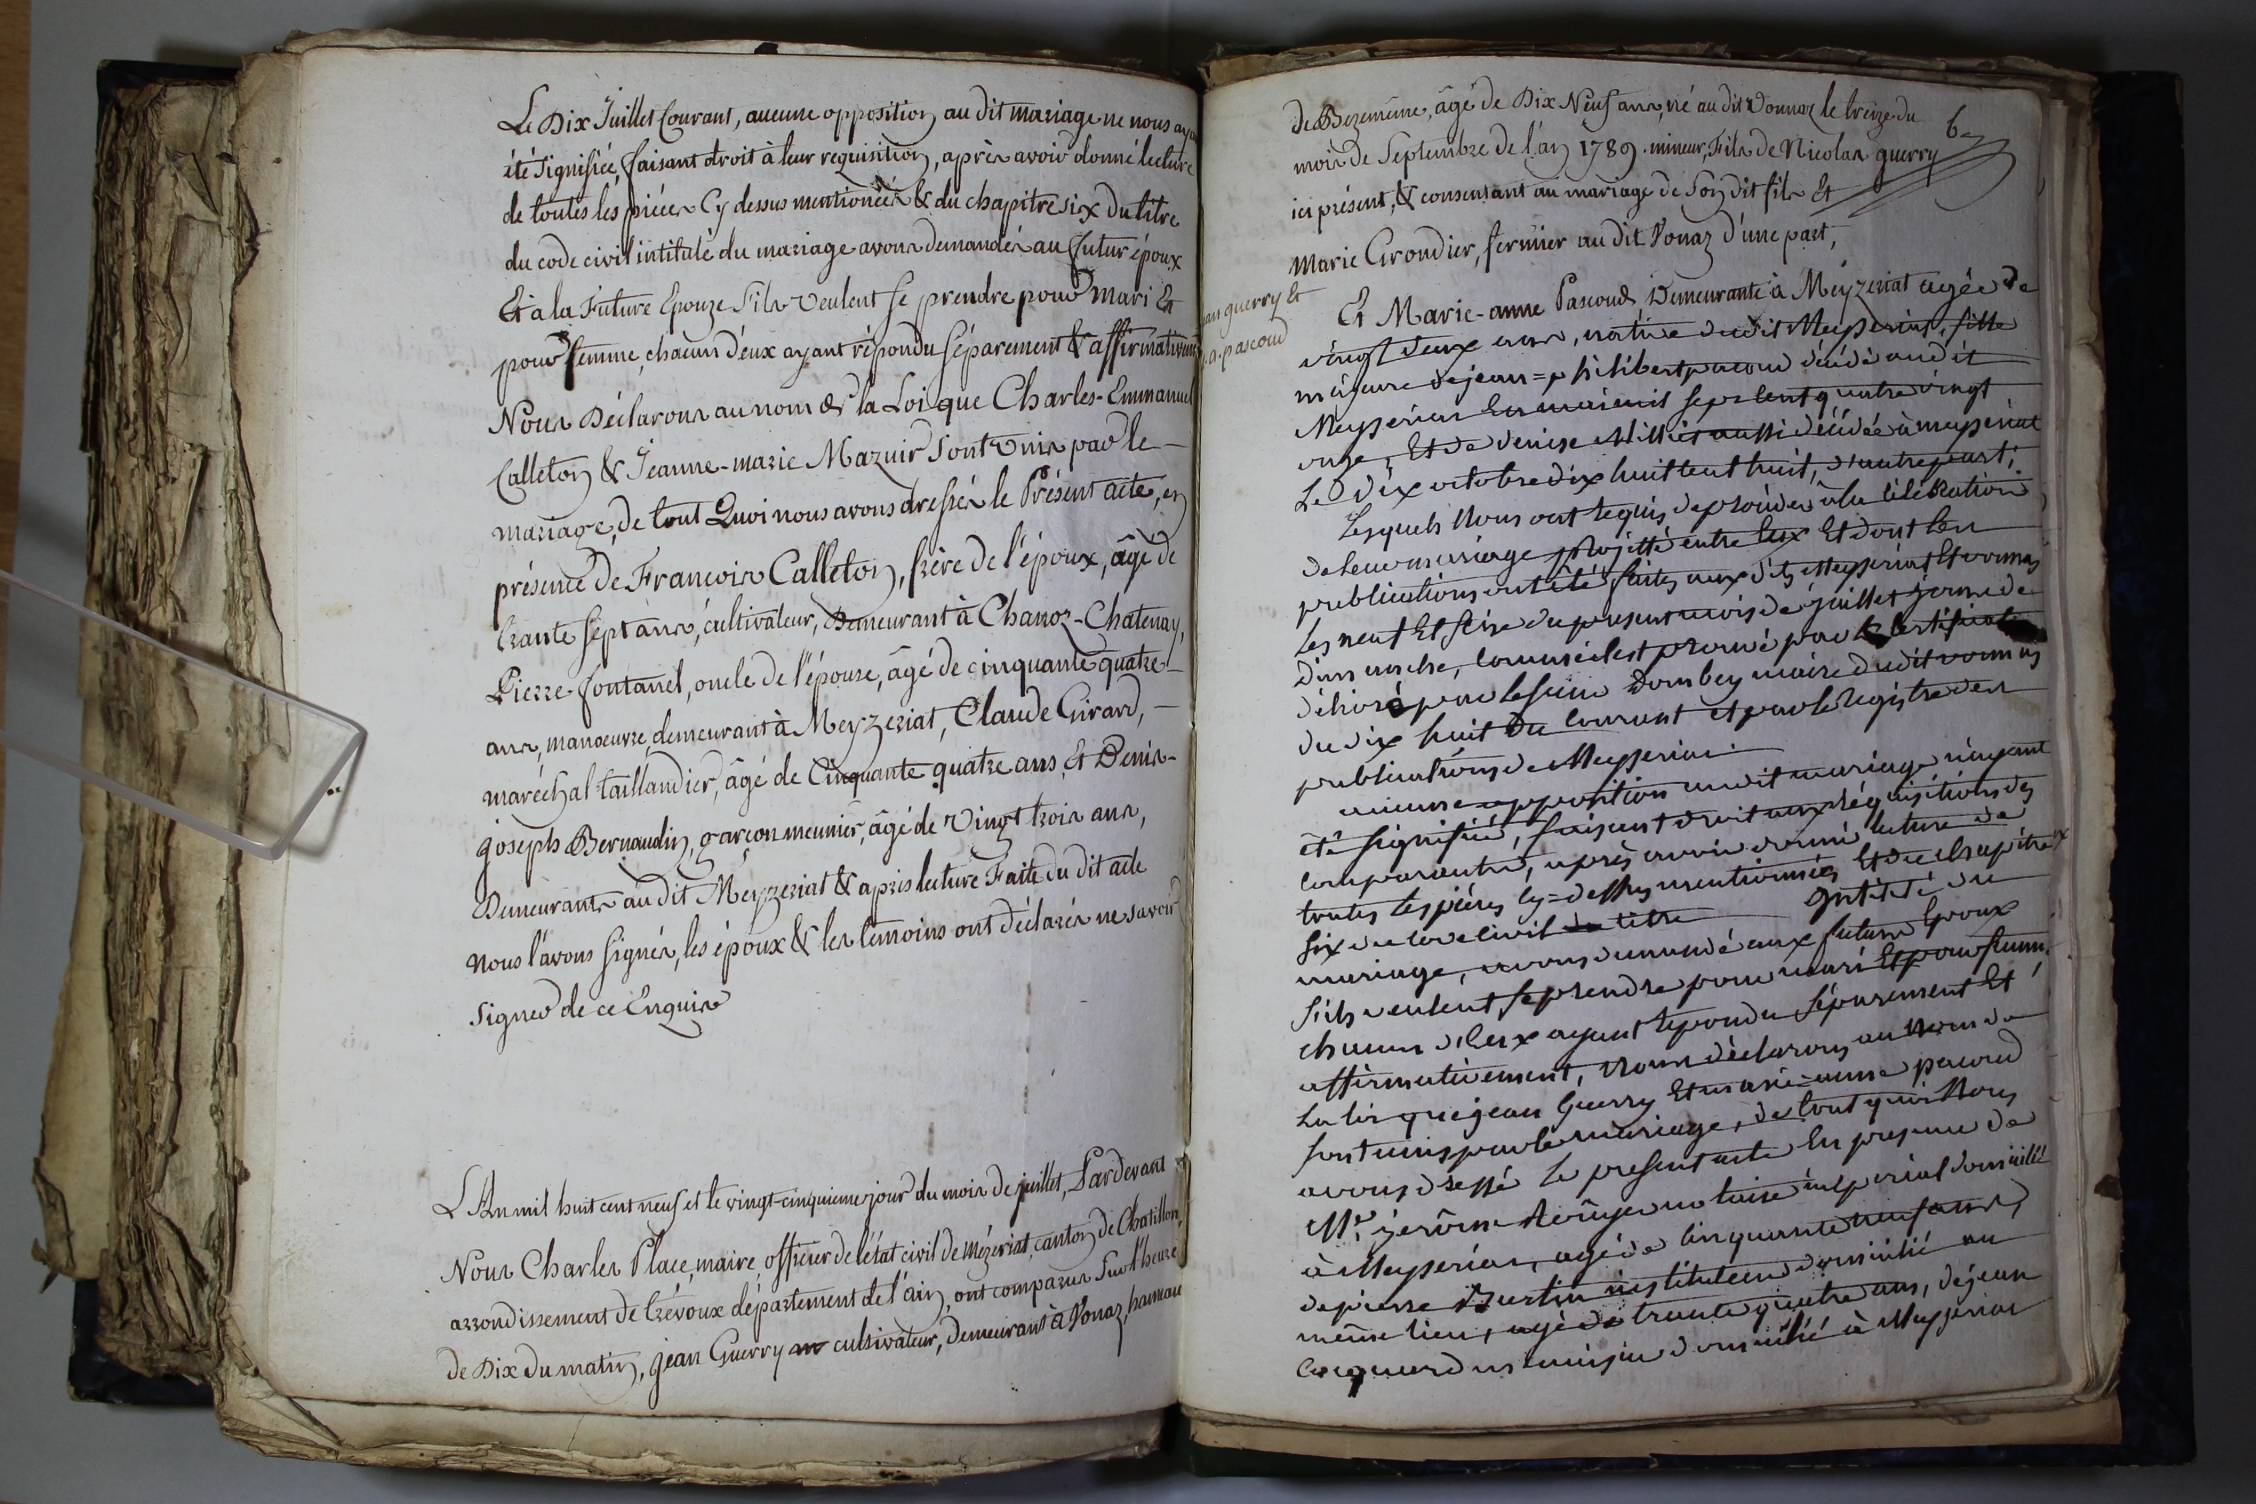 Le Dix Juillet Courant, aucune opposition au dit mariage ne nous ayant
été signifiée, faisant droit à leur requisition, après avoir donné lecture
de toutes les pièces Cy dessus mentionées & du chapitre six du titre
du code civil intitulé du mariage avons demandés au futur époux
Et à la Future Epouze s'ils veulent se prendre pour mari Et
pour femme, chacun d'eux ayant répondu séparement & affirmativement
Nous Déclarons au nom de la Loi que Charles-Emmanuel
Calleton & Jeanne-marie Mazuir sont Unis par le
mariage, de tout Quoi nous avons dressés le Présent acte, en
présence de François Calleton, frère de l'époux, âgé de
trante sept ans, cultivateur, Demeurant à Chanoz-Chatenay,
Pierre Fontanel, oncle de l'épouse, âgé de cinquante quatre
ans, manoeuvre, demeurant à Meyzeriat, Claude Girard,
maréchal taillandier, âgé de Cinquante quatre ans, Et Denis-
joseph Bernaudin, garçon meunier, âgé de vingt trois ans,
Demeurants au dit Meyzeriat & après lecture Faite du dit acte
nous l'avons signés, les époux & les temoins ont déclarés ne savoir
signer de ce Enquis
L'An mil huit cent neuf et le vingt-cinquieme jour du mois de juillet, Pardevant
Nous Charles Place, maire, officier de l'état civil de mézériat, canton de Chatillon,
arrondissement de trévoux département de l'ain, ont comparus sur l'heure
de Dix du matin, jean Guerry cultivateur, demeurant à Vonaz, hameau
6
de Bezemême, âgé de Dix Neuf ans, né au dit Vonnaz le treize du
mois de Septembre de l'an 1789. mineur, Fils de Nicolas guerry
ici présent, & consentant au mariage de son dit fils Et
Marie Grondier, fermier au dit Vonaz d'une part,
jean guerry Et
m. a. pascoud
Et Marie-anne Pascoud Demeurante à Meyzeriat agée de
vingt deux ans, native dudit Meyseriat, fille
majeure de jean=philibert pacoud décédé audit
Meyseriat En mai mil sept cent quatre vingt
onze, Et de denise Milliet aussi décédée à meyseriat
Le dix octobre dix huit cent huit, d'autre part;
Lesquels Nous ont requis de procéder à la célébration
de leur mariage projetté entre Eux Et dont les
publications ont été faites aux dits Meyseriat Et vonnas
Les neuf Et seize du present mois de juillet jours de
dimanche, comme il est prouvé par le certificat
délivré par le sieur Dombey maire dudit vonnas
du dix huit du courant et par le registre des
publications de Meysseriat.
aucune opposition au dit mariage n'ayant
été signifiée, faisant droit aux réquisitions des
comparants, après avoir donné lecture de
toutes les pièces cy=dessus mentionnées Et du chapitre
six du code civil titre intitulé du
mariage, avons demandé aux futurs Epoux
s'ils veulent se prendre pour mari Et pour femme
chacun d'Eux ayant repondu séparement Et
affirmativement, Nous déclarons au Nom de
La loi que jean Guerry Et marie=anne pacoud
sont unis par le mariage, de tout quoi Nous
avons dressé le present acte En presence de
Mr. jerôme notaire impérial domicilié
à Meyseriat, agé de cinquante neuf ans,
de pierre Burtin instituteur domicilié au
même lieu, agé de trante quatre ans, de jean
domicilié à Meyseriat